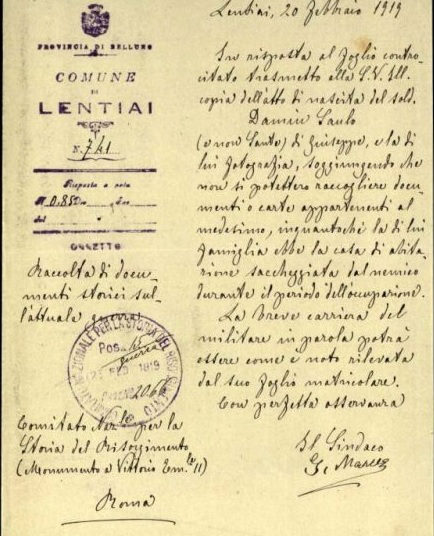 PROVINCIA DI BELLUNO
COMUNE
DI
LENTIAI
N. 741
Risposta a nota
N. 0.850
del
OGGETTO
Raccolta di docu-
menti storici sul-
l'attuale guerra
Lentiai, 20 Febbraio 1919
In risposta al foglio contro-
citato trasmetto alla S.V. Ill.
copia dell'atto di nascita del sold.
Damin Saulo
(e non Santo) di Giuseppe, e la di
lui fotografia, soggiungendo che
non si potettero raccogliere docu-
menti o carte appartenenti al
medesimo, inquantoché la di lui
famiglia ebbe la casa di abita-
zione saccheggiata dal nemico
durante il periodo dell'occupazione.
La breve carriera del
militare in parola potrà
essere come è noto rilevata
dal suo foglio matricolare.
Con perfetta osservanza
Il Sindaco
NAZIONALE PER LA STORIA DEL RISORGIMENTO
Pos.
guerra
1919
2066
Comitato Naz.le per la
Storia del Risorgimento
(Monumento a Vittorio Em.le II)
Roma